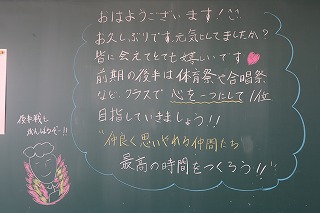 おはようございます!^^
お久しぶりです。元気にしてましたか?
皆に会えてとても嬉しいです♥
前期の後半は体育祭や合唱祭
など、クラスで心を一つにして1位
目指していきましょう!!
"仲良く思いやれる仲間たち
最高の時間をつくろう!!"
後半戦も
がんばるぞー!!